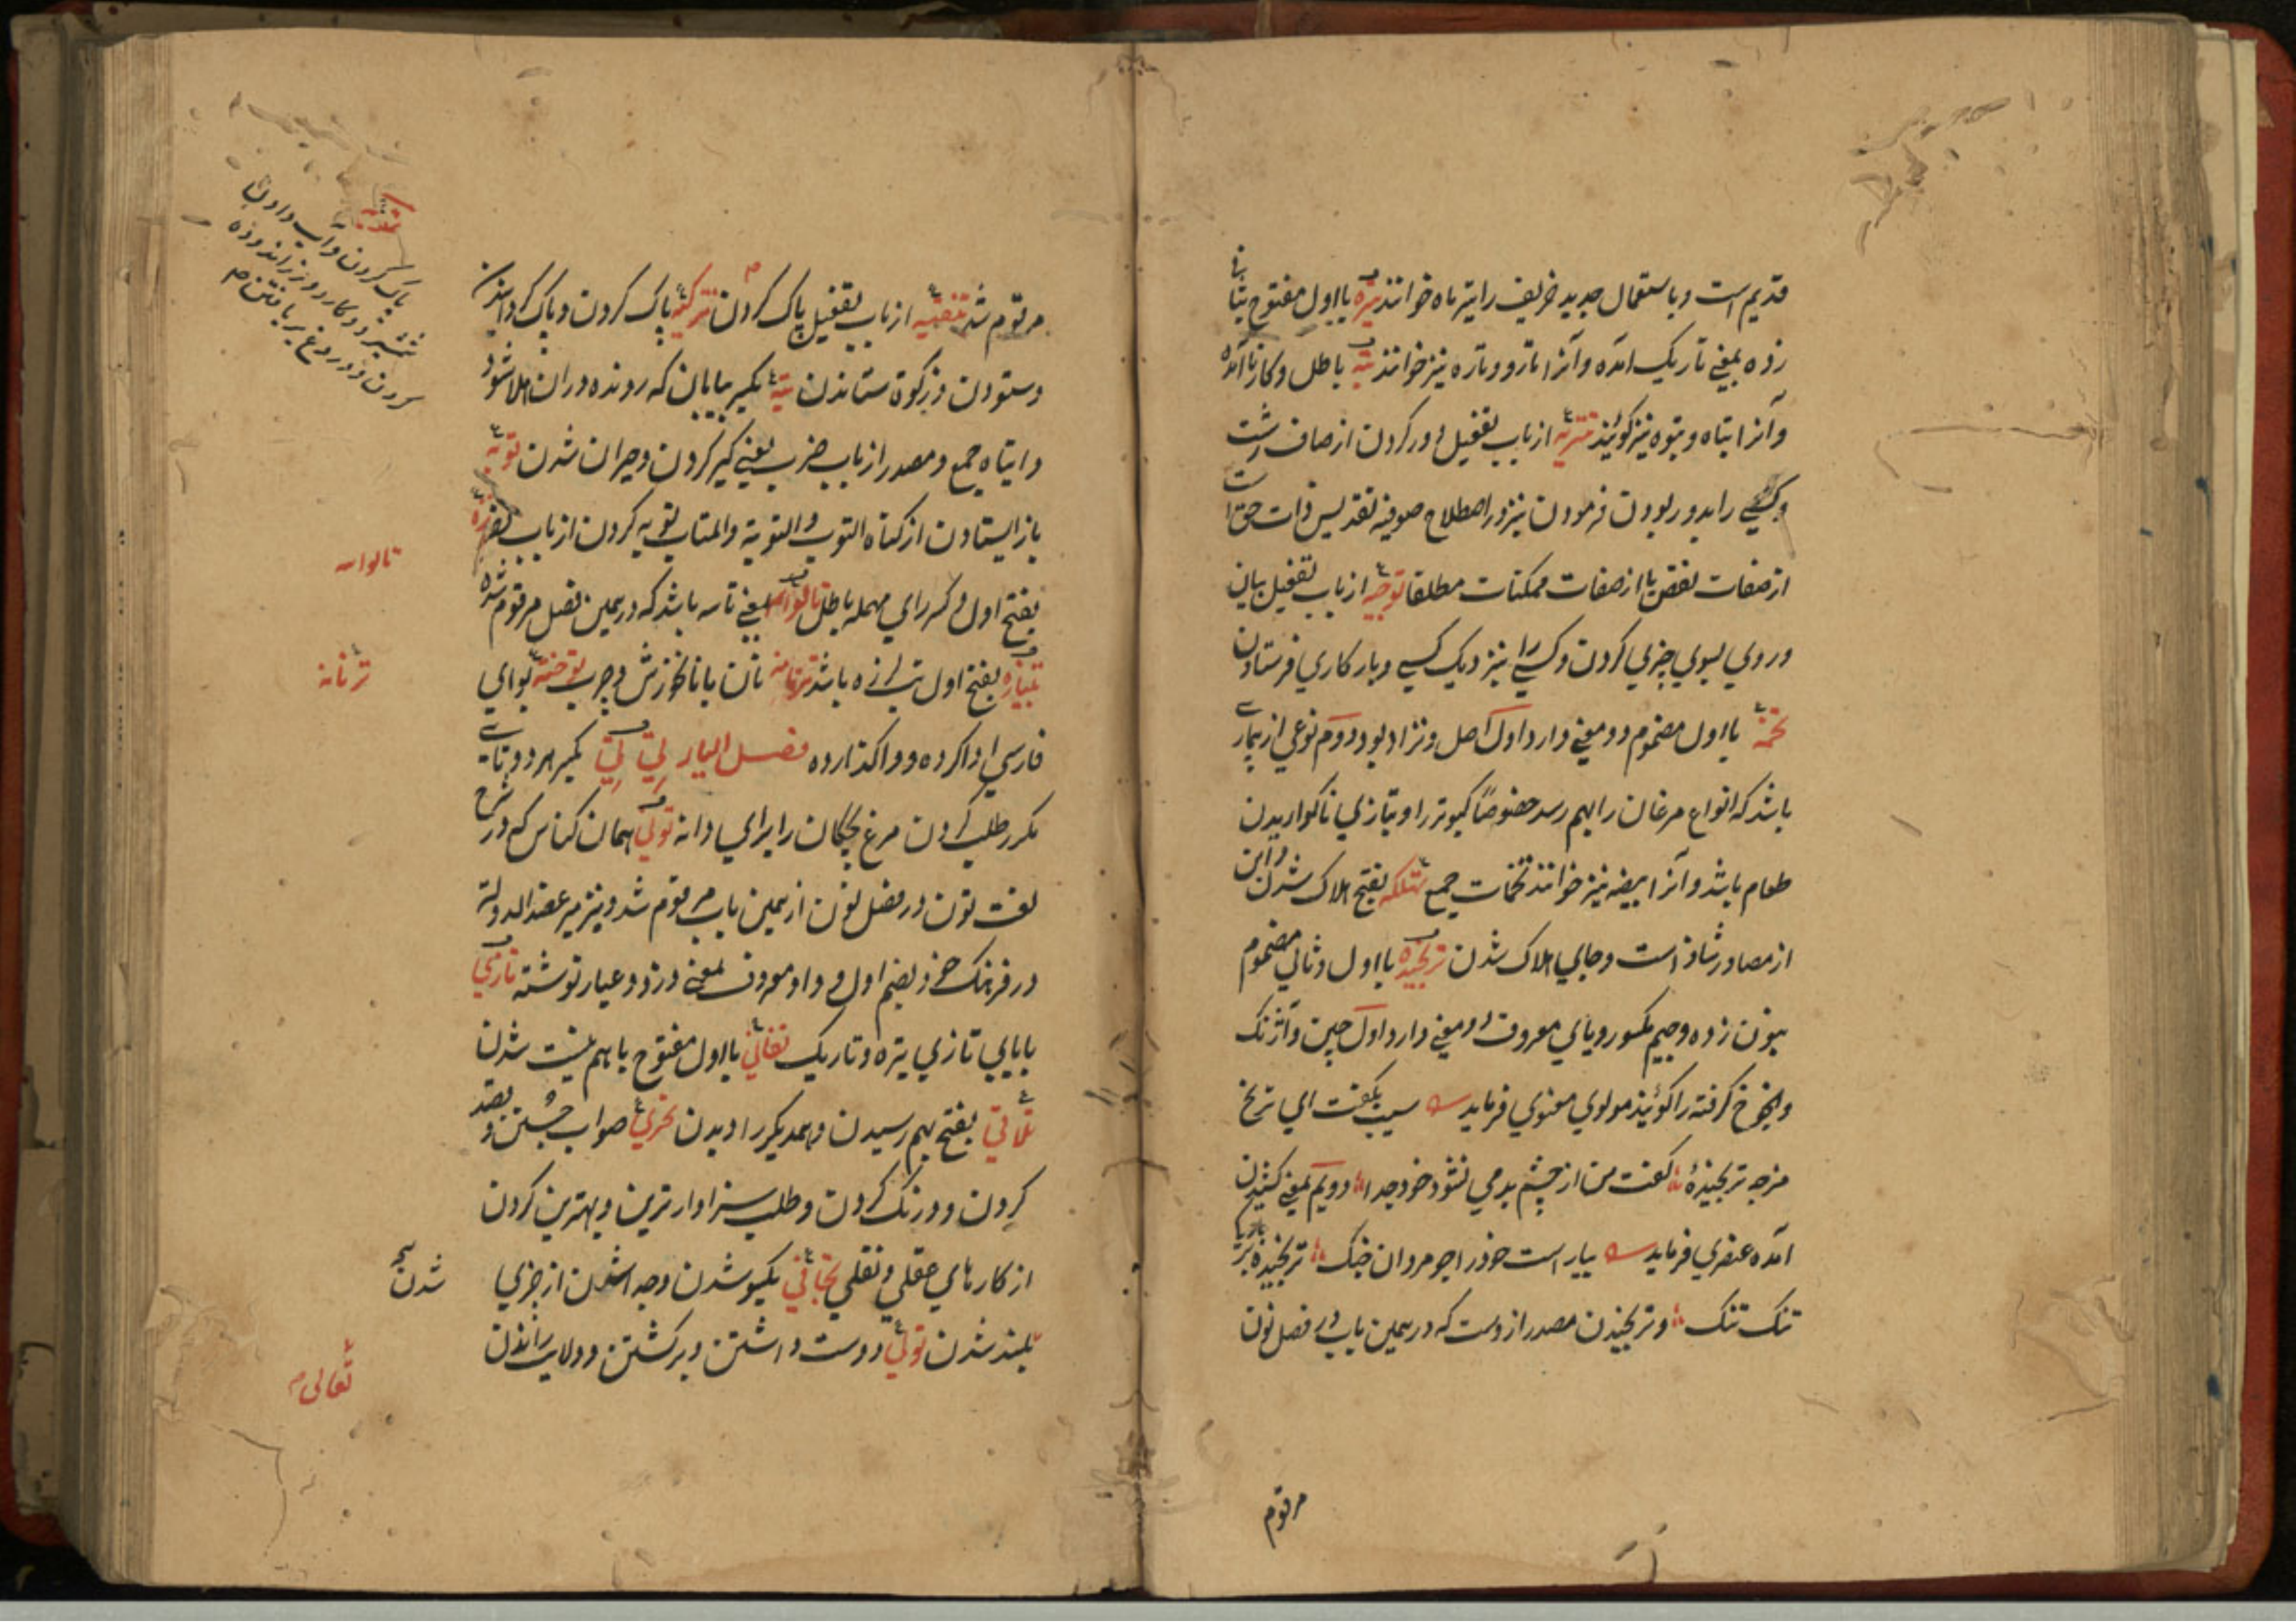 قدیم است و باستعمال جدید خریف را تیر ماه خوانند تیره بااول مفتوح بثانی
زده بمعنی تاریک آمده و آنرا تار و تاره نیز خوانند تبه باطل و کار ناآمده
و آنرا تباه و تبوه نیز گویند تنزیه از باب تفعیل دور کردن از صفات زشت
و کسی را بدور بودن فرمودن نیز در اصطلاح صوفیه تقدیس ذات حق است
از صفات نقص یا از صفات ممکنات مطلقا توجیه از باب تفعیل بیان
و روی بسوی چیزی کردن و کسی را بنزدیک کسی و بار کاری فرستادن
تخمه بااول مضموم دو معنی دارد اول اصل و نژاد بود دوم نوعی از بیماری
باشد که انواع مرغان را بهم رسد خصوصا کبوتر را و بتازی ناگواریدن
طعام باشد و آنرا بیضه نیز خوانند تخمات جمع تهلکه بفتح هلاک شدن و این
از مصادر شاذ است و جای هلاک شدن ترنجیده بااول و ثانی مضموم
بنون زده و جیم مکسور و یای معروف دو معنی دارد اول چین و آژنگ
گرفته را گویند مولوی معنوی فرماید سیب بگفت ای ترنج
از چه ترنجیدهٔ گفت من از چشم بد می نشوم خود جدا دویم بمعنی کشیدن
آمده عنصری فرماید بیاراست خود را چو مردان جنگ ترنجیده بر بارگی
تنگ تنگ و ترنجیدن مصدر ازوست که در همین باب در فصل نون
مرقوم
مرقوم شد تنقیه از باب تفعیل پاک کردن تزکیه پاک کردن و پاک گردانیدن
و ستودن و زکوة ستاندن تیه بکسر بیابان که رونده دران هلاک شود
و اتیاه جمع و مصدر از باب ضرب یعنی کبر کردن و حیران شدن توبه
باز ایستادن از گناه التوب و التوبة و المتاب توبه کردن از باب نصر ترّه
بفتح اول و کسر رای مهمله باطل تالواسه یعنی تاسه باشد که در همین فصل مرقوم شده
بفتح اول تب لرزه باشد ترنانه نان با نانخورش و چرب توخته بواوی
فارسی ادا کرده و واگذارده فصل الیاء تی تی بکسر هر دو تای
مکرر طلب کردن مرغ بچگان را برای دانه تونی همان کناس که در شرح
لغت تون در فصل نون از همین باب مرقوم شد و نیز میر عضد الدوله
در فرهنگ خود بضم اول و واو معروف بمعنی دزد و عیار نوشته تاری
بایای تازی تیره و تاریک تفانی بااول مفتوح باهم نیست شدن
تلاقی بفتح بهم رسیدن و همدیگر را دیدن تحری صواب جستن و قصد
کردن و درنگ کردن و طلب سزاوارترین و بهترین کردن
از کارهای عقلی و نقلی تجافی یکسو شدن و جدا شدن از چیزی
بلند شدن تولی دوست داشتن و برگشتن و ولایت راندن
پاک کردن و آب دادن
تالواسه
ترنانه
شدن
تعالی